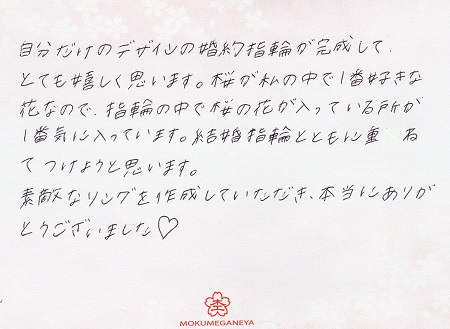 自分だけのデザインの婚約指輪が完成して、
とても嬉しく思います。桜が私の中で1番好きな
花なので、指輪の中で桜の花が入っている所が
1番気に入っています。結婚指輪とともに重 ね
て つけようと思います。
素敵なリングを作成していただき、本当にありが
とうございました♡
MOKUMEGANEYA